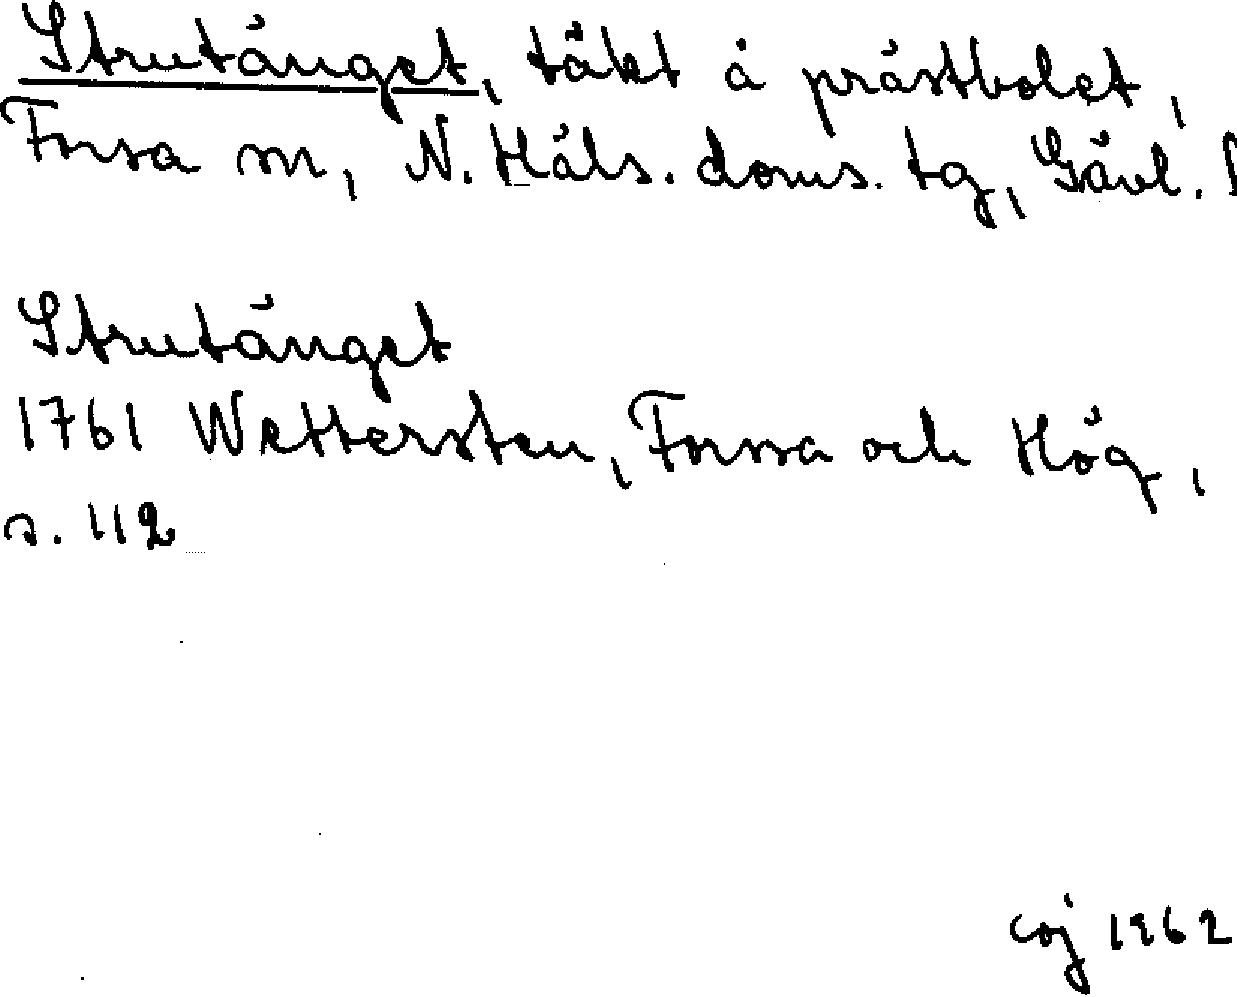 Strutänget, täkt å prästbolet,
Forsa sn, N. Häls. doms. tg, Gävl. l
Strutänget
1761 Wettersten, Forssa och Hög,
s. 112
coj 1962